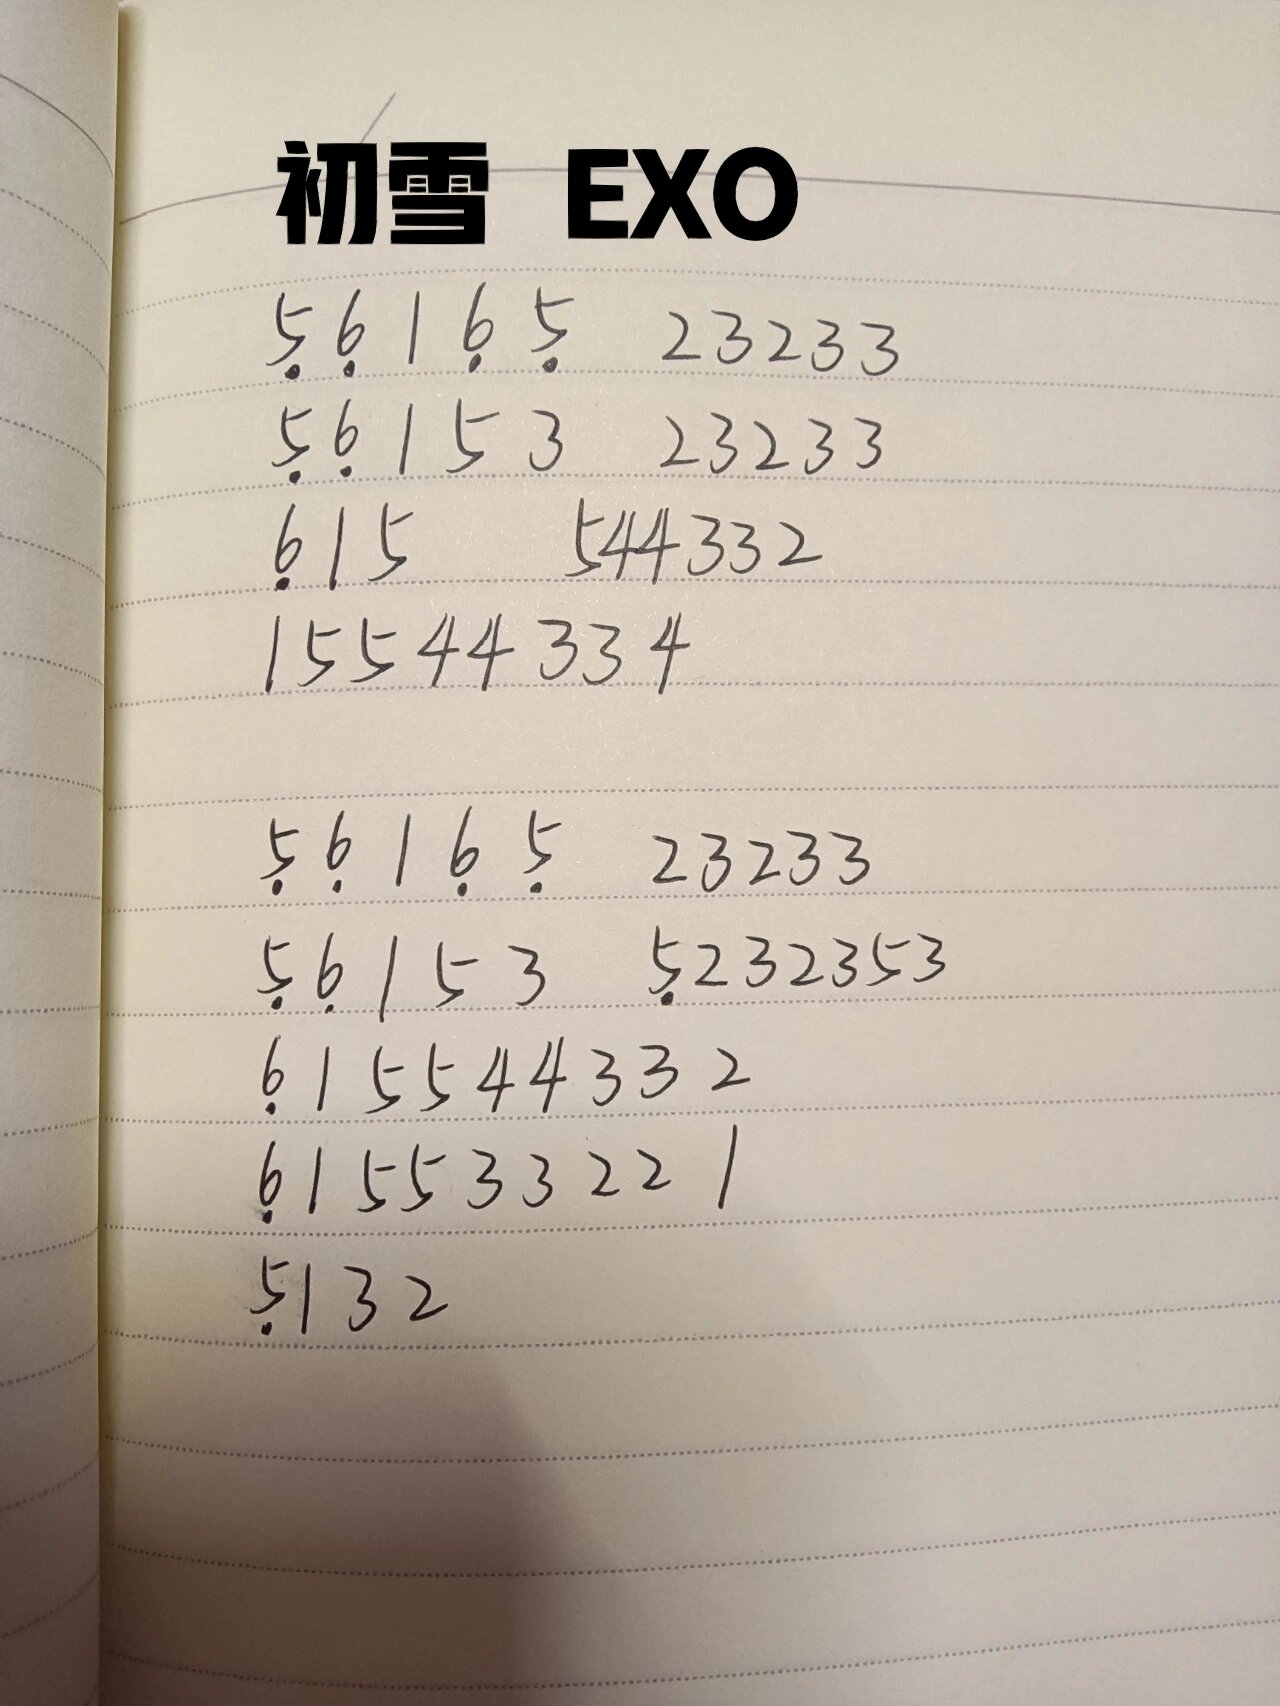 初雪 EXO
5̣ 6̣ 1 6̣ 5̣ 23233
5̣ 6̣ 1 5 3 23233
6̣ 1 5 544332
15544334
5̣ 6̣ 1 6̣ 5̣ 23233
5̣ 6̣ 1 5 3 5̣232353
6̣ 1 5 5 4 4 3 3 2
6̣ 1 5 5 3 3 2 2 1
5̣ 1 3 2